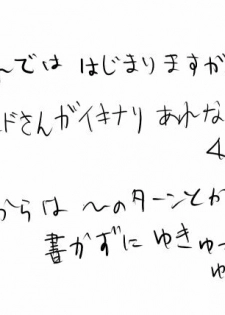 んでは はじまりますが
ドさんがイキナリ あれな
からは 〜のターンとか
書かずに ゆきゅ
ゆ